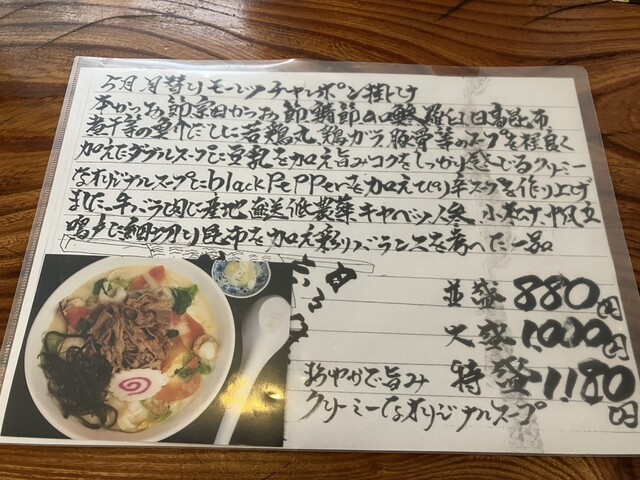 5月 月替り モーニングチャンポン
本かつお節 宗田かつお節 鯖節 羅臼 日高昆布
煮干等の 若鶏丸 鶏ガラ 豚骨等のスープを程良く
加えたダブルスープに豆乳を加え旨みコクをしっかり感じるクリーミー
なオリジナルスープにblackPepperを加えて スープを作り上げ
ました 牛バラ肉に産地直送低農薬キャベツ 人参 小松菜 帆立
鳴門に細切り昆布を加え彩りバランスを考へた一品
並盛 880円
大盛 1,000円
まろやかで旨み 特盛 1,180円
クリーミーなオリジナルスープ